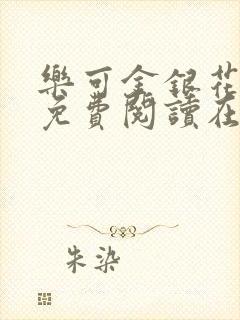 樂可金銀花
免費閱讀在
朱染